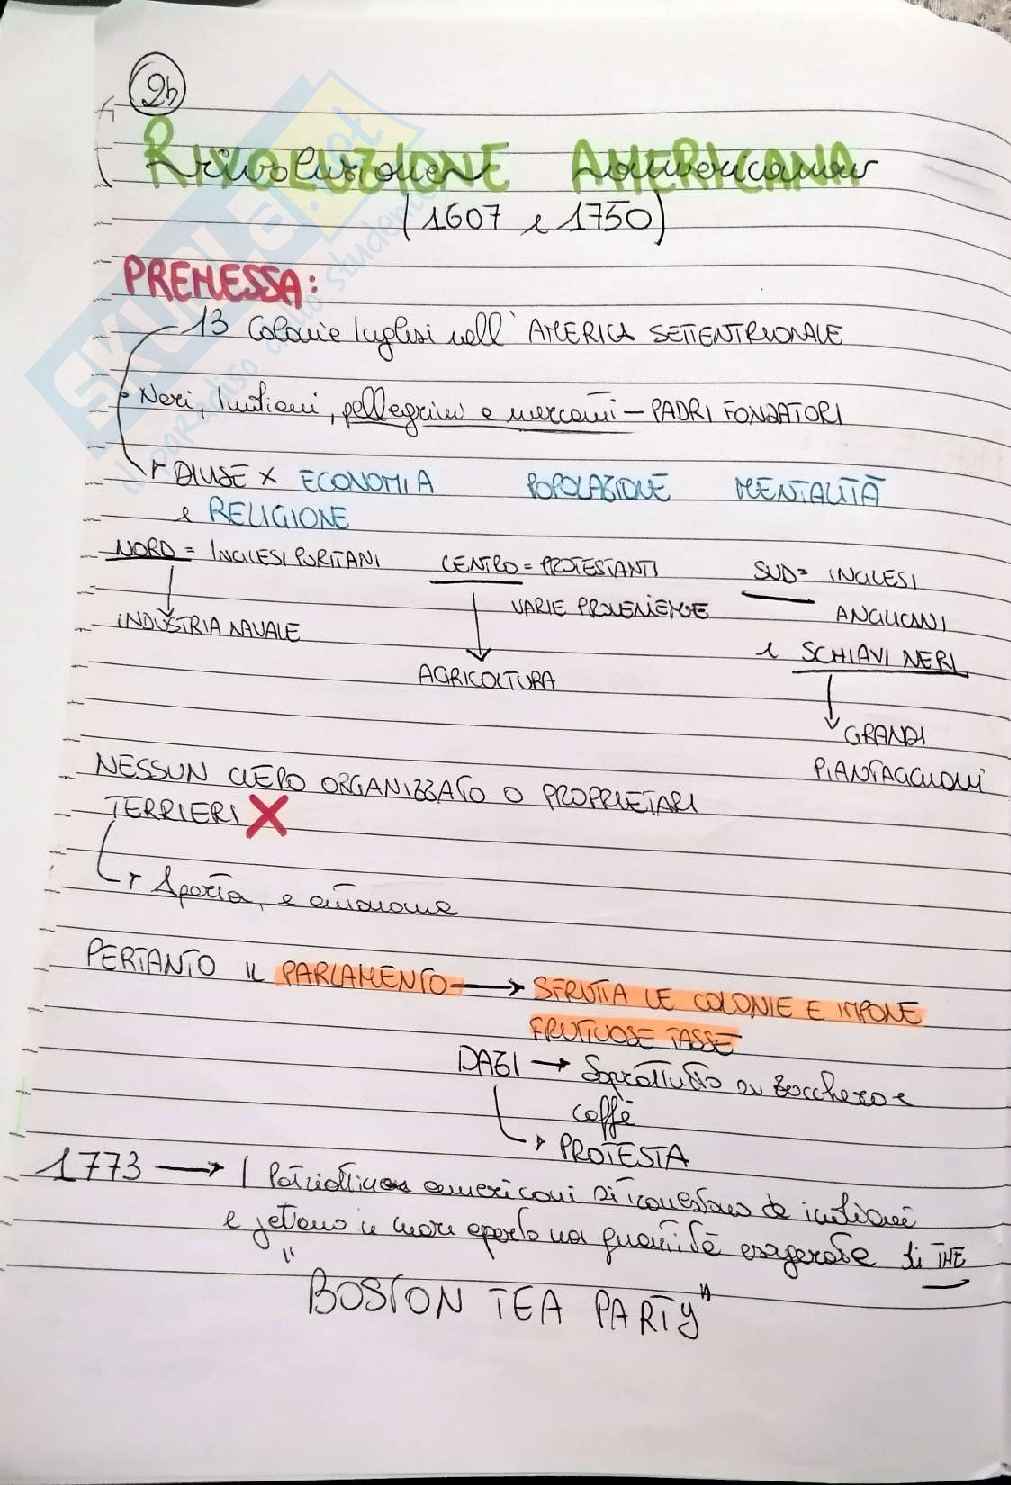 2b
RIVOLUZIONE AMERICANA
rivoluzione americana
(1607 e 1750)
PREMESSA:
13 Colonie Inglesi nell' AMERICA SETTENTRIONALE
Neri, Indiani, pellegrini e mercanti – PADRI FONDATORI
DIVISE X ECONOMIA POPOLAZIONE MENTALITÀ
e RELIGIONE
NORD = INGLESI PURITANI CENTRO = PROTESTANTI SUD = INGLESI
VARIE PROVENIENZE ANGLICANI
INDUSTRIA NAVALE e SCHIAVI NERI
AGRICOLTURA
GRANDI
PIANTAGIONI
NESSUN CLERO ORGANIZZATO O PROPRIETARI
TERRIERI X
Aperta, e autonoma
PERTANTO IL PARLAMENTO → SFRUTTA LE COLONIE E IMPONE
FRUTTUOSE TASSE
DAZI → Soprattutto su zucchero e
caffè
PROTESTA
1773 → I Patriottici americani si travestono da indiani
e gettano in mare aperto una quantità esagerata di THE
"BOSTON TEA PARTY"
SKUOLA.net
il paradiso dello studente